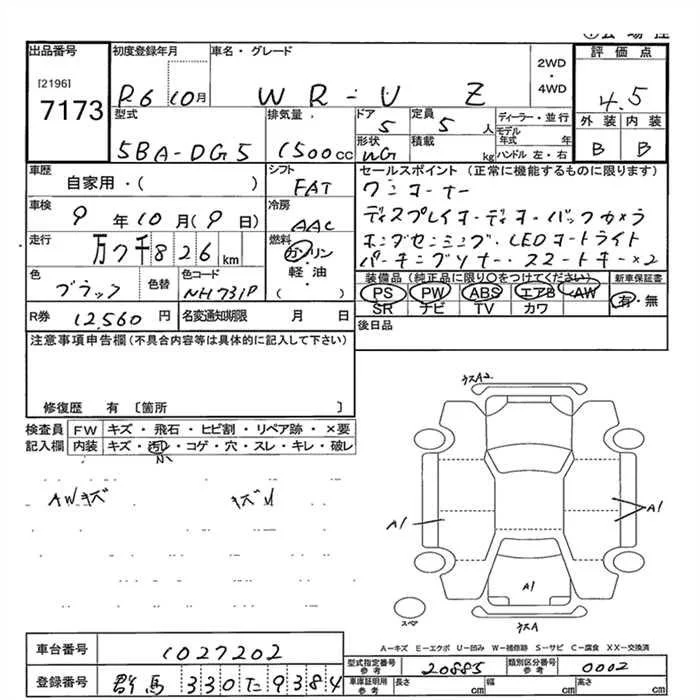 出品番号 初度登録年月 車名・グレード 2WD・4WD 評価点
[2196]
7173 R6 10月 WR-V Z 4.5
型式 排気量 ドア 定員 ディーラー・並行 外装 内装
5BA-DG5 1500cc 5 5人 モデル年式 年 B B
形状 積載 ハンドル 左・右
WG kg
車歴 自家用・( ) シフト FAT セールスポイント (正常に機能するものに限ります)
ワンオーナー
車検 9年10月(9日) 冷房 AAC ディスプレイオーディオ・バックカメラ
走行 万7千826km 燃料 ガソリン・軽油・( ) LEDオートライト
パーキングソナー・スマートキー×2
色 ブラック 色替 色コード NH731P 装備品(純正品に限り〇をつけてください) 新車保証書
PS PW ABS エアB AW 有・無
SR ナビ TV カワ
R券 12,560円 名変通知期限 月 日 後日品
注意事項申告欄(不具合内容等は具体的に記入して下さい)
修復歴 有 〔箇所 〕
検査員記入欄 FW キズ・飛石・ヒビ割・リペア跡・×要
内装 キズ・汚れ・コゲ・穴・スレ・キレ・破レ
小
ウスA2
AWキズ キズ
A1 A1
A1
スペア ウスA
A-キズ E-エクボ U-凹み W-補修跡 S-サビ C-腐食 XX-交換済
車台番号 1027202
型式指定番号 参考 20885 類別区分番号 参考 0002
登録番号 群馬 330 た 9384
車庫証明用 参考 長さ cm 幅 cm 高さ cm